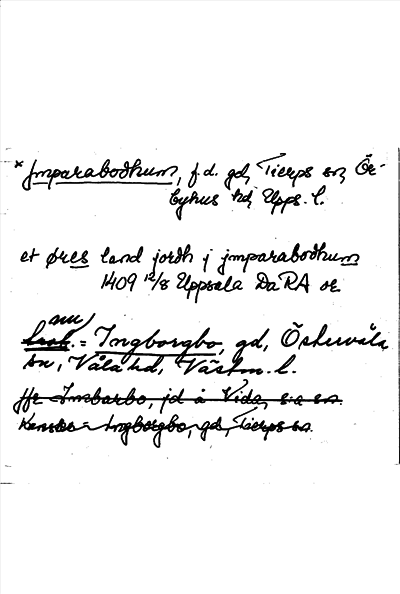 * Jmparabodhum, f.d. gd, Tierps sn, Ör-
byhus hd, Upps. l.
et øres land jordh j jmparabodhum
1409 12/8 Uppsala DaRA or
nu
= Ingborgbo, gd, Östervåla
sn, Våla hd, Västm. l.
jfr Imbarbo, jd å Vida, s:a sn.
Kanske = Ingborgbo, gd, Tierps sn.